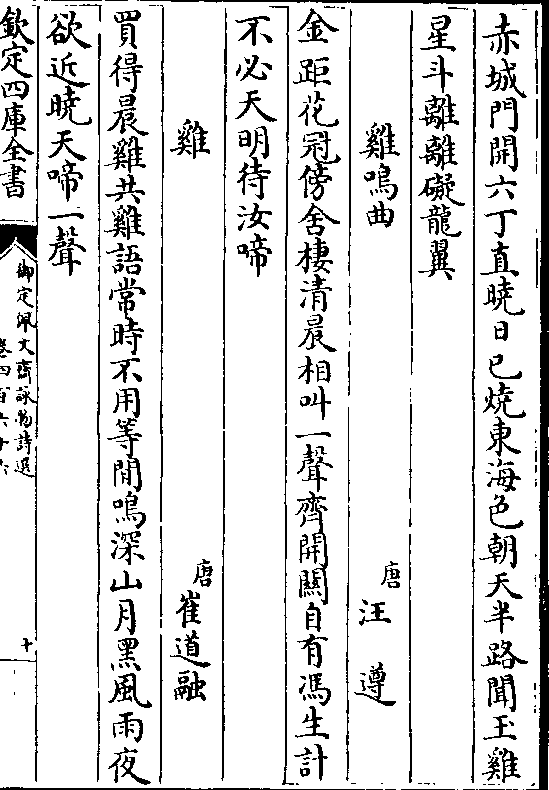 赤城門開六丁直曉日已燒東海色朝天半路聞玉雞
星斗離離礙龍翼
雞鳴曲 唐 汪遵
金距花冠傍舍棲清晨相叫一聲齊開關自有馮生計
不必天明待汝啼
雞 唐 崔道融
買得晨雞共雞語常時不用等閒鳴深山月黑風雨夜
欲近曉天啼一聲
欽定四庫全書
御定佩文齋詠物詩選
卷四百六十六
十